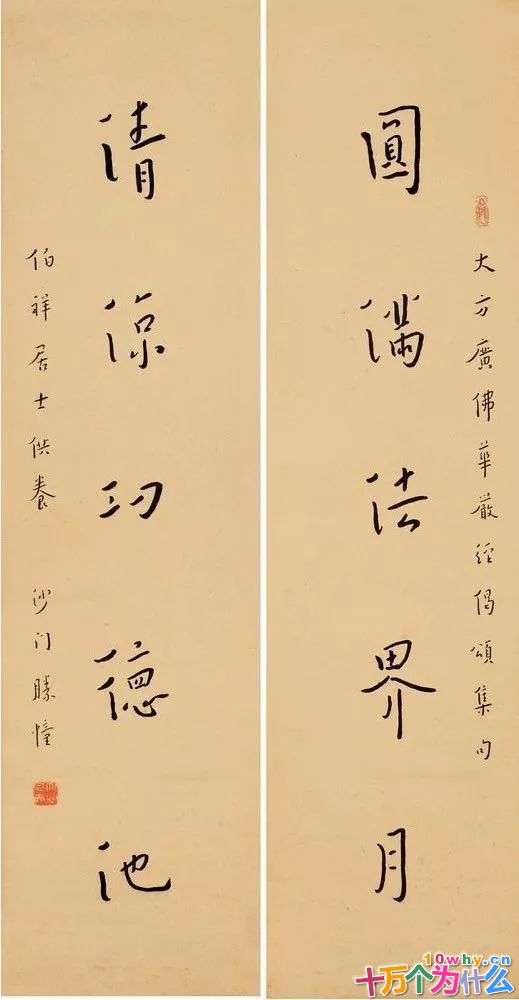 大方廣佛華嚴經偈頌集句
圓滿法界月
清涼功德池
伯祥居士供養 沙门勝幢
10why.cn
十万个为什么